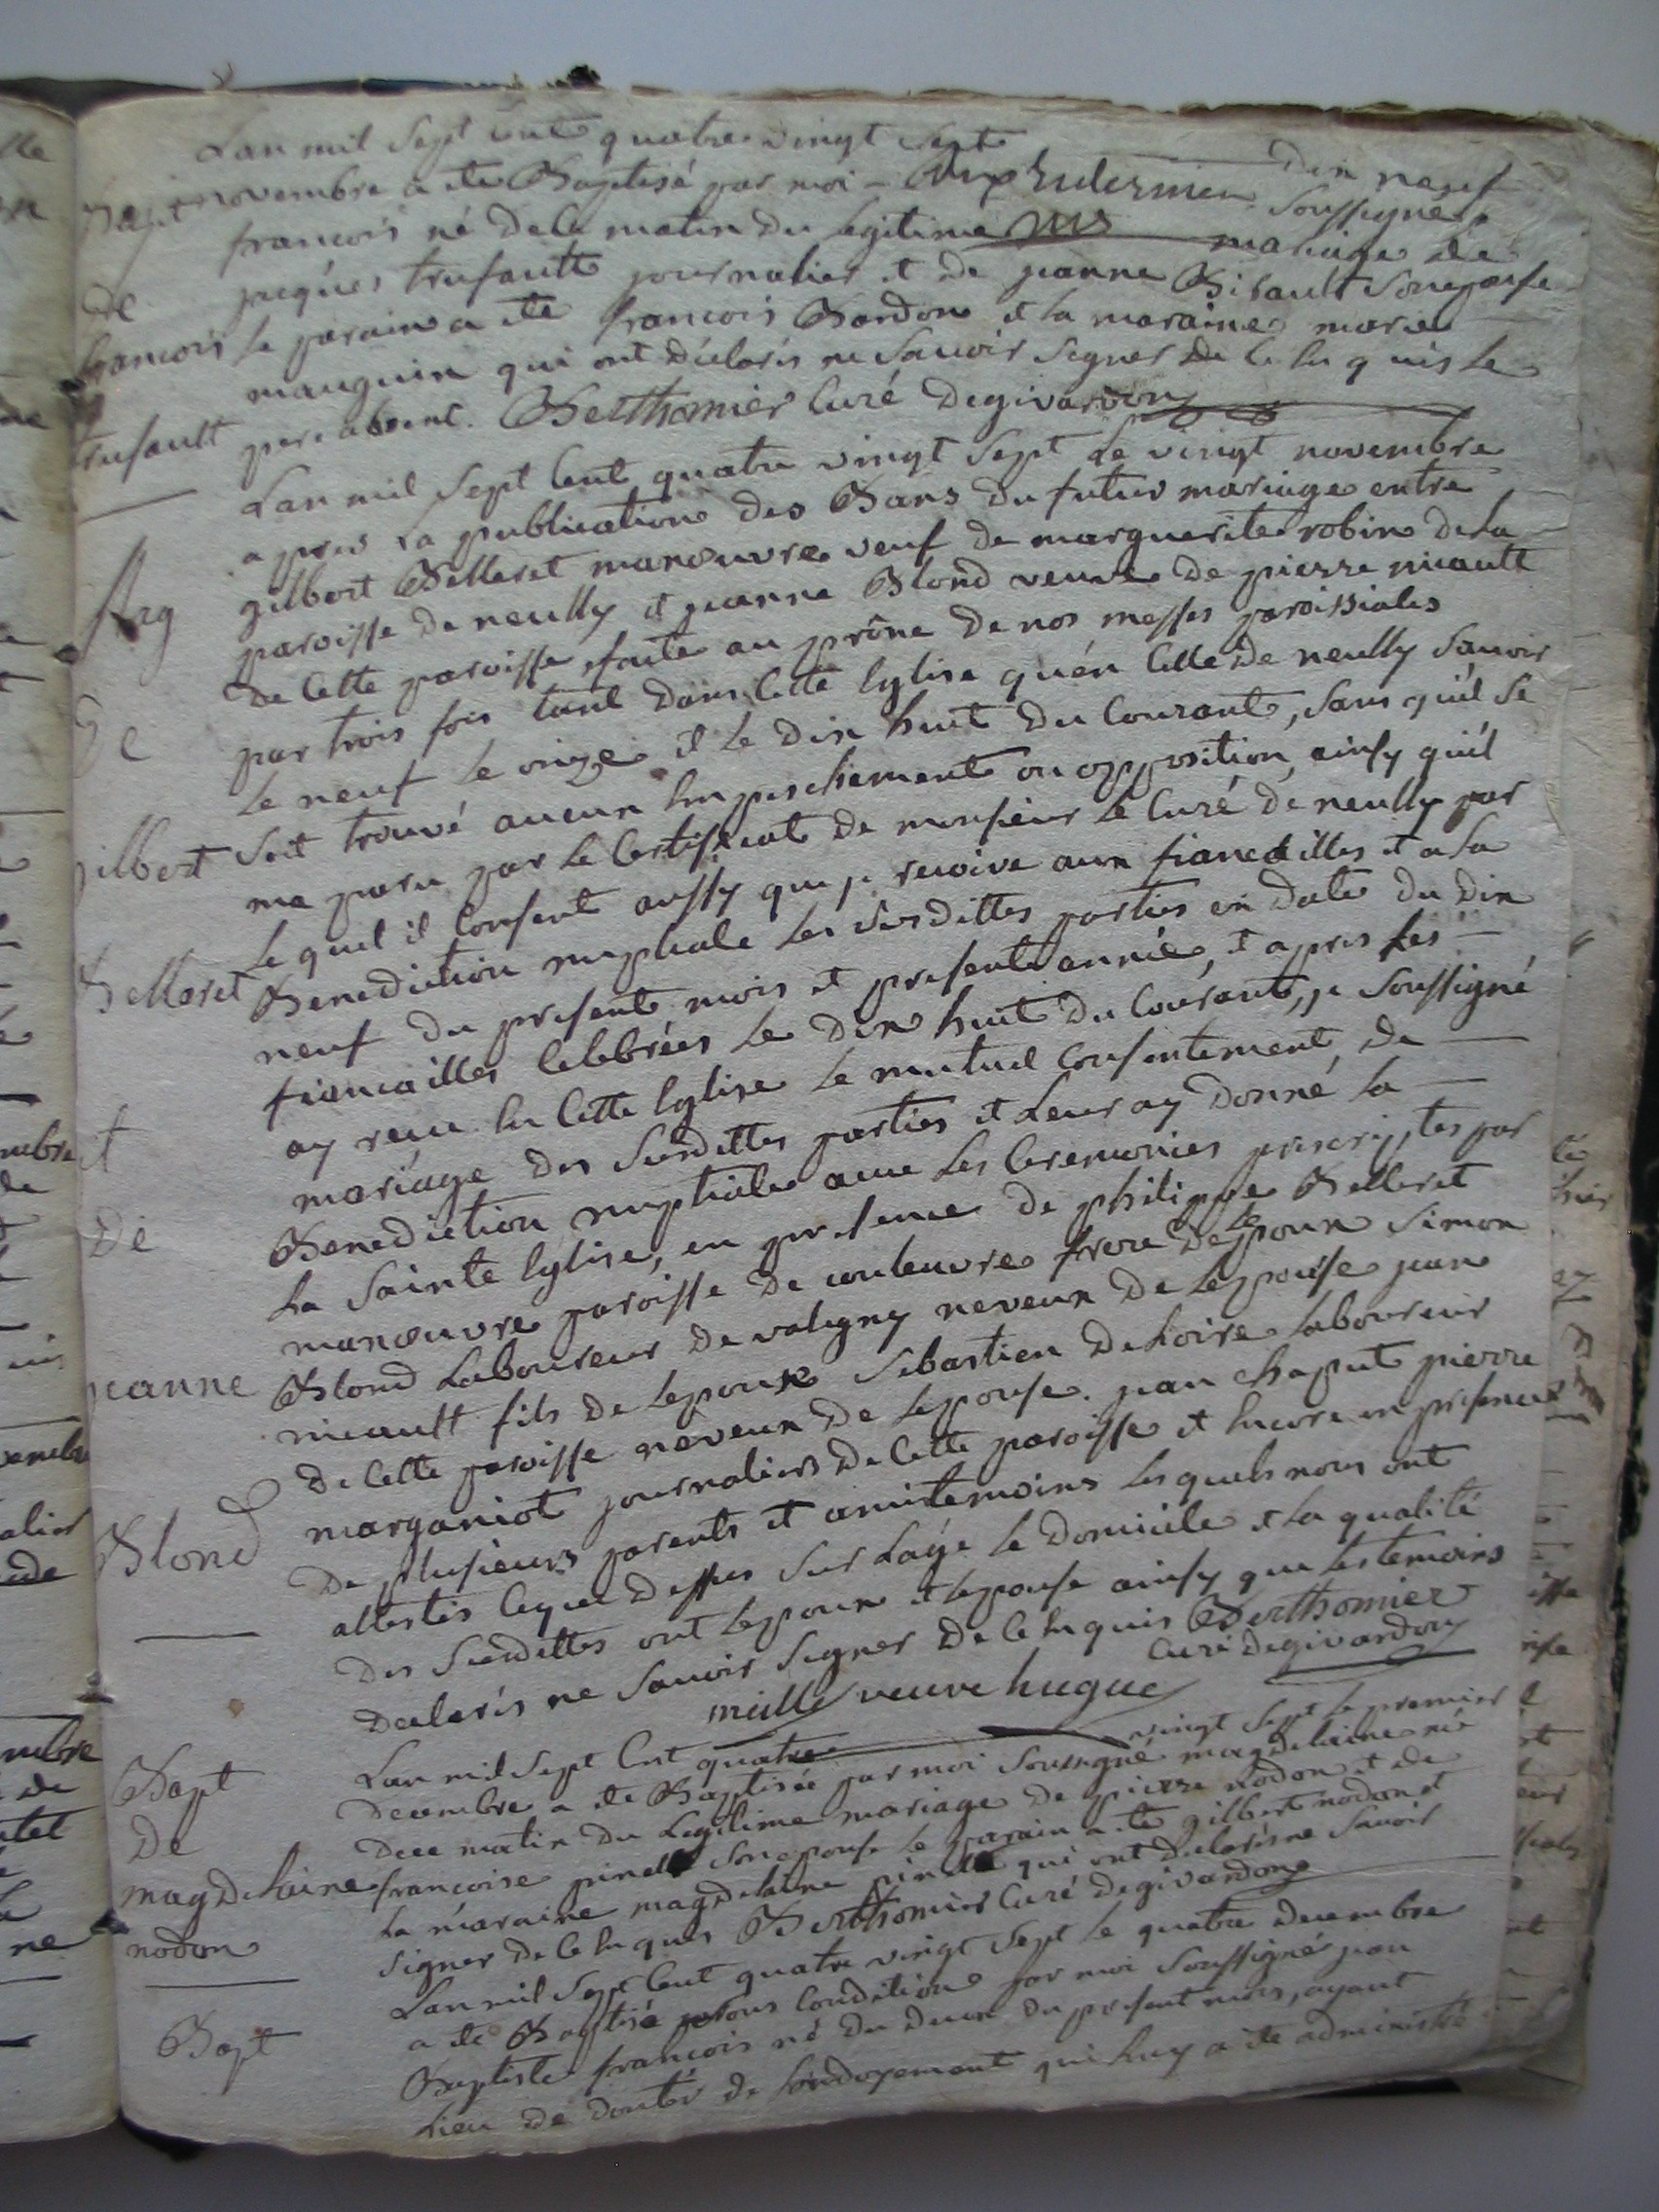 Lan mil Sept Cent quatre vingt Sept dix neuf
Bapt novembre a ete Baptisé par moi Soussigné
francois né de ce matin du legitime mariage de
de jacques trufault journalier et de jeanne Bibault son epouse
francois le parain a ete francois Bardon et la maraine marie
mauguin qui ont déclarés ne Savoir Signer de ce enquis le
trufault pere absent. Berthomier Curé degivardon
Lan mil Sept Cent quatre vingt Sept Le vingt novembre
apres La publication des Bans du futur mariage entre
Mrg gilbert Belleret manoeuvre veuf de marguerite robin de la
paroisse de neuilly et jeanne Blond veuve de pierre micault
de Cette paroisse, faite au prône de nos messes paroissiales
De par trois fois tant dans Cette Eglise qu'en Celle de neuilly Savoir
Le neuf Le onze et Le dix huit du Courant, Sans qu'il Se
gilbert Soit trouvé aucun Empechement ou opposition, ainsy qu'il
ma paru par Le Certificat de monsieur Le Curé de neuilly par
Le quel il Consent aussy que je recoive aux fiancailles et a La
Belleret Benediction nuptiale Les Susdittes parties en date du dix
neuf du present mois et presente année, et apres Les
fiancailles Celebrées Le dix huit du Courant, je Soussigné
ay recu En Cette Eglise Le mutuel Consentement de
et mariage des Susdittes parties et Leur ay donné La
Benediction nuptiale avec Les Ceremonies prescriptes par
De La Sainte Eglise, en presence de philippe Belleret
manoeuvre paroisse de couleuvre frere de Lepoux Simon
jeanne Blond Laboureur de valigny neveux de Lepouse jean
micault fils de Lepouse Sebastien dehoire Laboureur
de Cette paroisse neveux de Lepouse. jean chaput pierre
Blond marganiot journaliers de Cette paroisse et Encore en presence
de plusieurs parents et amis temoins Les quels nous ont
attestés Ceque dessus Sur Lâge Le domicile et La qualité
des Susdittes ont Lepoux et Lepouse ainsy que Les temoins
declarés ne Savoir Signer de Ce Enquis Berthomier
Curé degivardon
veuve hugue
Lan mil Sept Cent quatre vingt Sept Le premier
Bapt decembre a ete Baptisée par moi Soussigné magdelaine née
De de ce matin du Legitime mariage de pierre nodon et de
magdelaine francoise pinel Son epouse Le parain a ete gilbert nodon et
La maraine magdelaine pinel qui ont declarés ne Savoir
nodon Signer de Ce Enquis Berthomier Curé degivardon
Lan mil Sept Cent quatre vingt Sept Le quatre decembre
Bapt a ete Baptisé Sous Condition par moi Soussigné jean
Baptiste francois né du deux du present mois, ayant
Lieu de douter de Londoyement qui Luy a ete administré